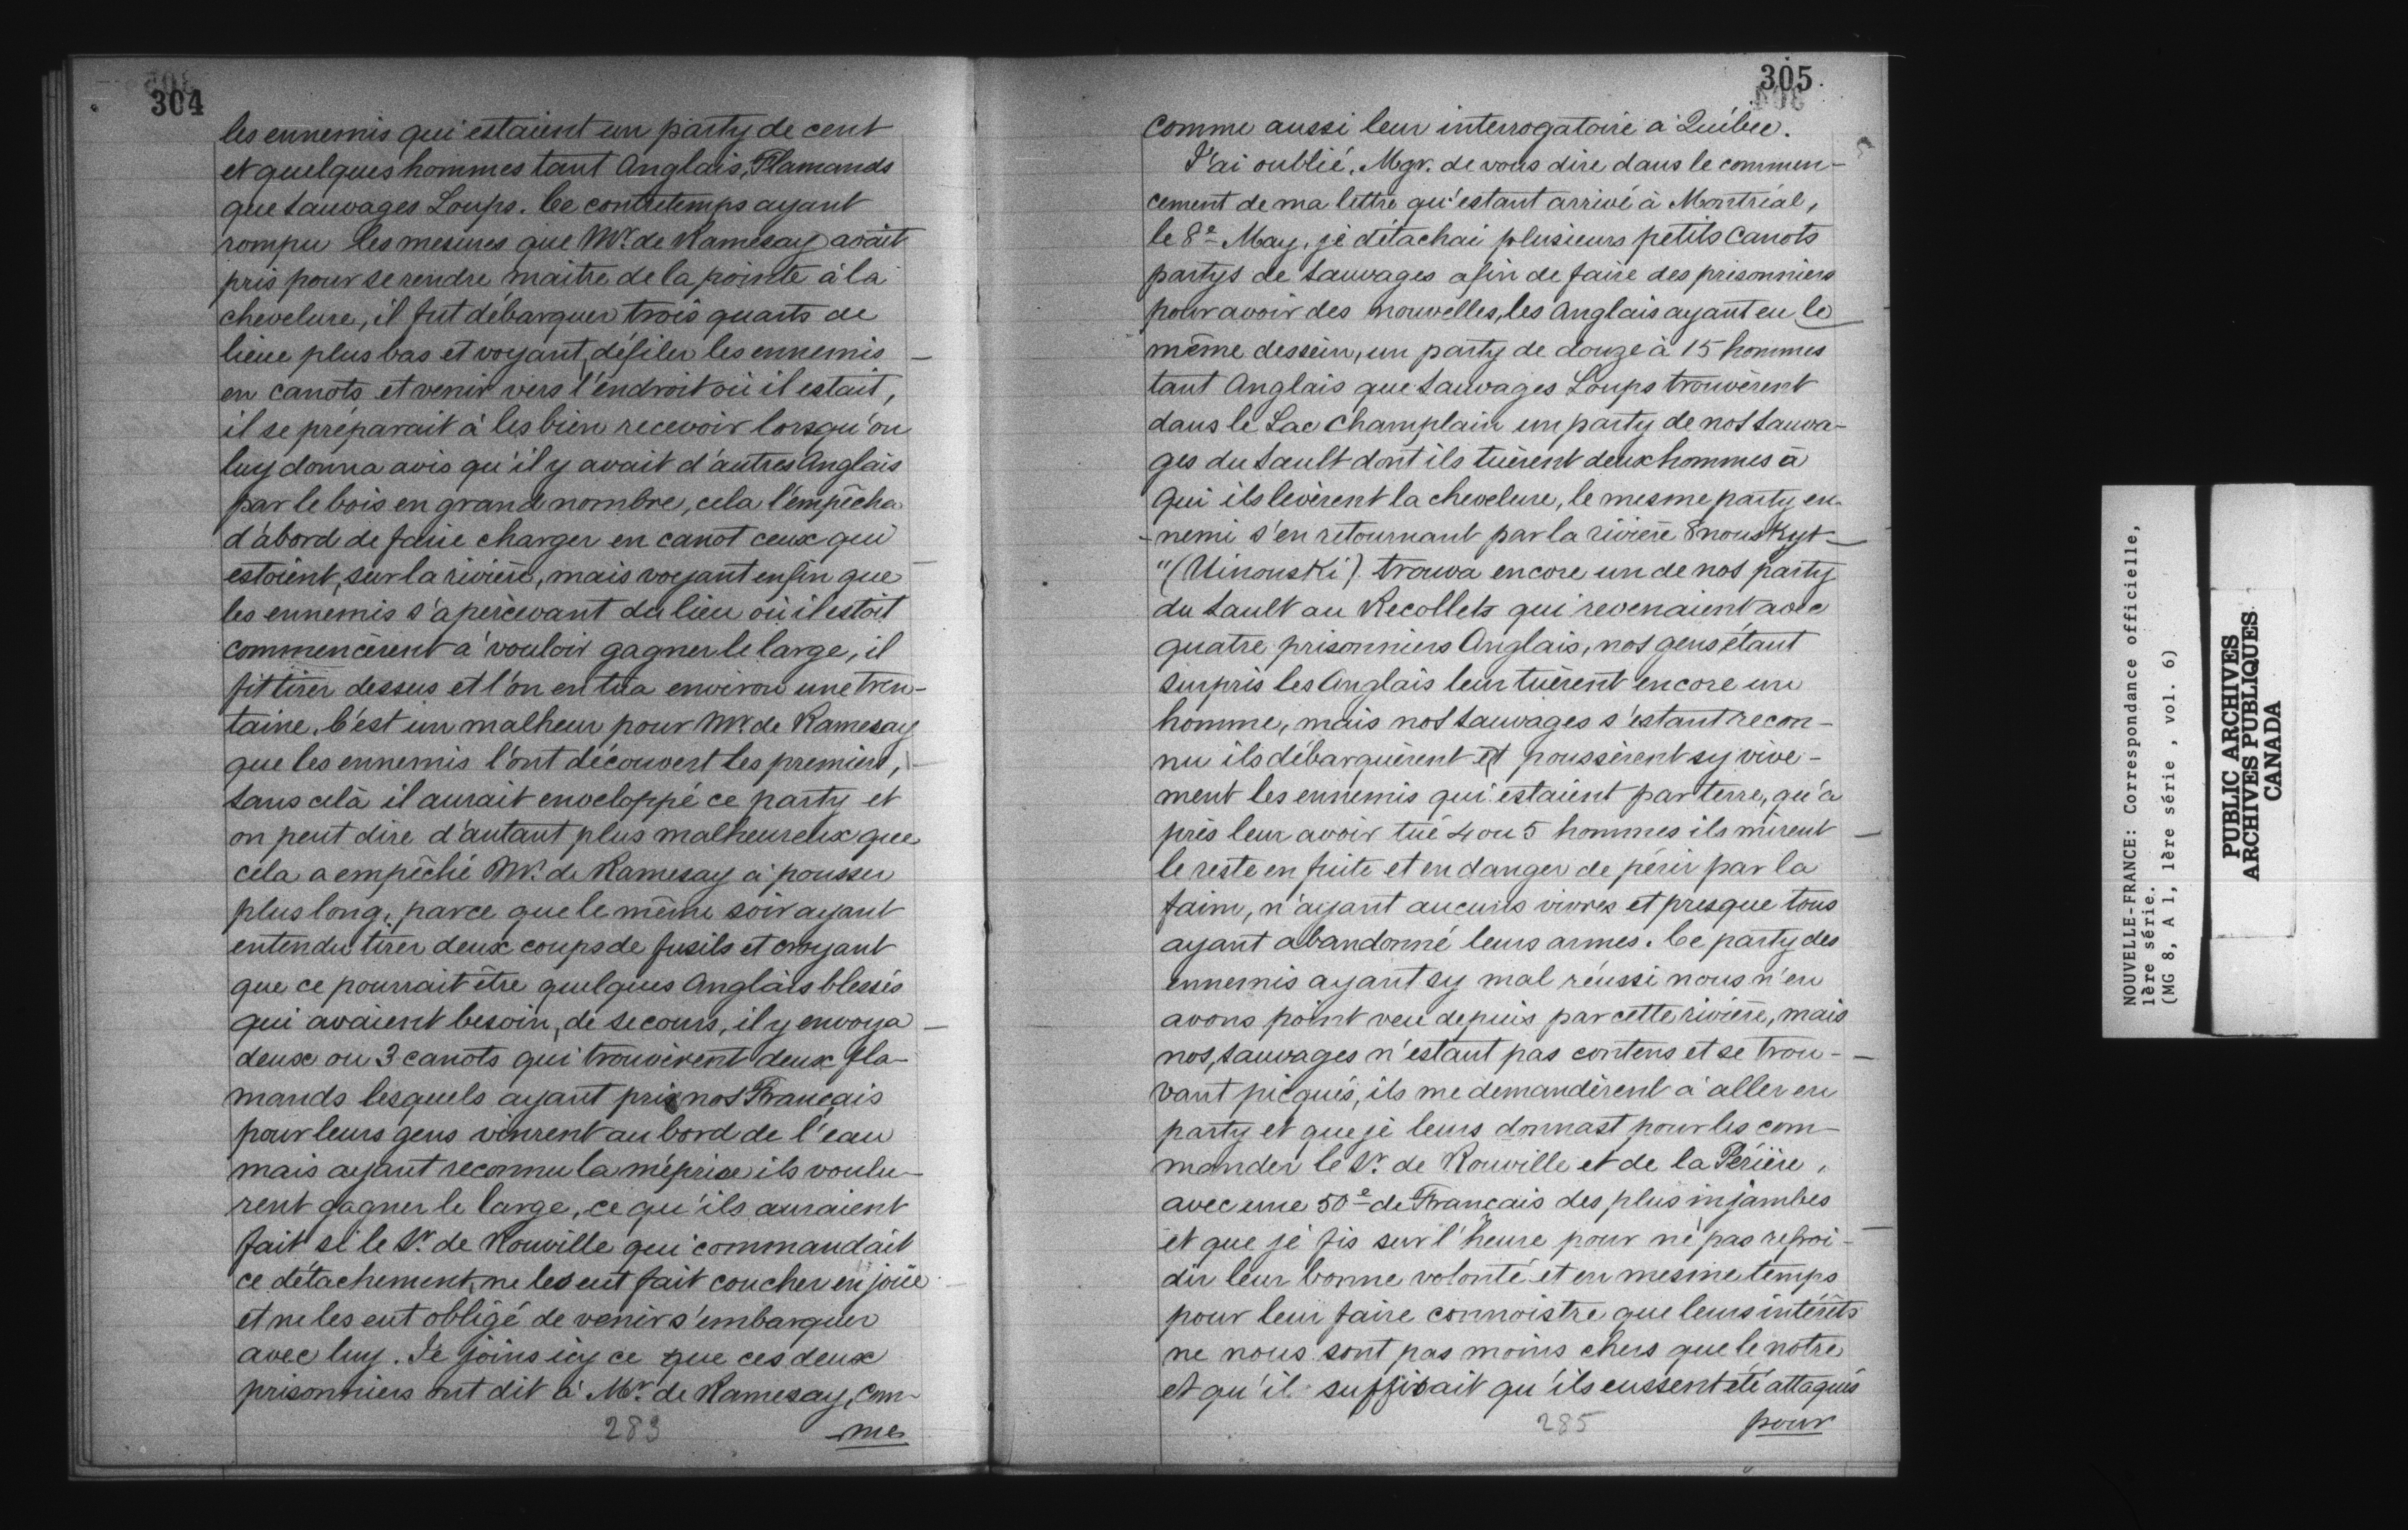 304
les ennemis qui estaient un party de cent
et quelques hommes tant Anglais, Flamands
que Sauvages Loups. Ce contretemps ayant
rompu les mesures que Mr. de Ramesay avait
pris pour se rendre maitre de la pointe à la
chevelure, il fut débarquer trois quarts de
lieue plus bas et voyant défiler les ennemis
en canots et venir vers l'endroit où il estait,
il se préparait à les bien recevoir lorsqu'on
luy donna avis qu'il y avait d'autres Anglais
par le bois en grand nombre, cela l'empêcha
d'abord de faire charger en canot ceux qui
estoient, sur la rivière, mais voyant enfin que
les ennemis s'apercevant du lieu où il estoit
commencèrent à vouloir gagner le large, il
fit tirer dessus et l'on en tua environ une tren-
taine. C'est un malheur pour Mr. de Ramesay
que les ennemis l'ont découvert les premiers,
sans celà il aurait enveloppé ce party et
on peut dire d'autant plus malheureux que
cela a empêché Mr. de Ramesay à pousser
plus long, parce que le même soir ayant
entendu tirer deux coups de fusils et croyant
que ce pourrait être quelques Anglais blessés
qui avaient besoin, de secours, il y envoya
deux ou 3 canots qui trouvèrent deux fla-
mands lesquels ayant pris nos Français
pour leurs gens vinrent au bord de l'eau
mais ayant reconnu la méprise ils voulu-
rent gagner le large, ce qu'ils auraient
fait si le Sr. de Rouville qui commandait
ce détachement, ne les eut fait coucher en joüe
et ne les eut obligé de venir s'embarquer
avec luy. Je joins icy ce que ces deux
prisonniers ont dit à Mr. de Ramesay, com-
283
me
305
comme aussi leur interrogatoire à Québec.
J'ai oublié, Mgr. de vous dire dans le commen-
cement de ma lettre qu'estant arrivé à Montréal,
le 8e May, je détachai plusieurs petits canots
partys de Sauvages afin de faire des prisonniers
pour avoir des nouvelles, les Anglais ayant eu le
même dessein, un party de douze à 15 hommes
tant Anglais que Sauvages Loups trouvèrent
dans le Lac Champlain un party de nos Sauva-
ges du Sault dont ils tuèrent deux hommes à
qui ils levèrent la chevelure, le mesme party en-
-nemi s'en retournant par la rivière 8nouskyt
"(Uinouski) trouva encore un de nos party
du Sault au Recollets qui revenaient avec
quatre prisonniers Anglais, nos gens étant
surpris les Anglais leur tuèrent encore un
homme, mais nos Sauvages s'estant recon-
nu ils débarquèrent et poussèrent sy vive-
ment les ennemis qui estaient par terre, qu'a
près leur avoir tué 4 ou 5 hommes ils mirent
le reste en fuite et en danger de périr par la
faim, n'ayant aucuns vivres et presque tous
ayant abandonné leurs armes. Ce party des
ennemis ayant sy mal réussi nous n'en
avons point veu depuis par cette rivière, mais
nos, Sauvages n'estant pas contens et se trou-
vant picqués, ils me demandèrent à aller en
party et que je leurs donnast pour les com-
mander le Sr. de Rouville et de la Périère,
avec une 50e de Français des plus injambes
et que je fis sur l'heure pour ne pas refroi-
dir leur bonne volonté et en mesme temps
pour leur faire connoistre que leurs intérêts
ne nous sont pas moins chers que le notre
et qu'il suffisait qu'ils eussent été attaqués
285
pour
NOUVELLE-FRANCE: Correspondance officielle,
1ère série.
(MG 8, A 1, 1ère série, vol. 6)
PUBLIC ARCHIVES
ARCHIVES PUBLIQUES
CANADA